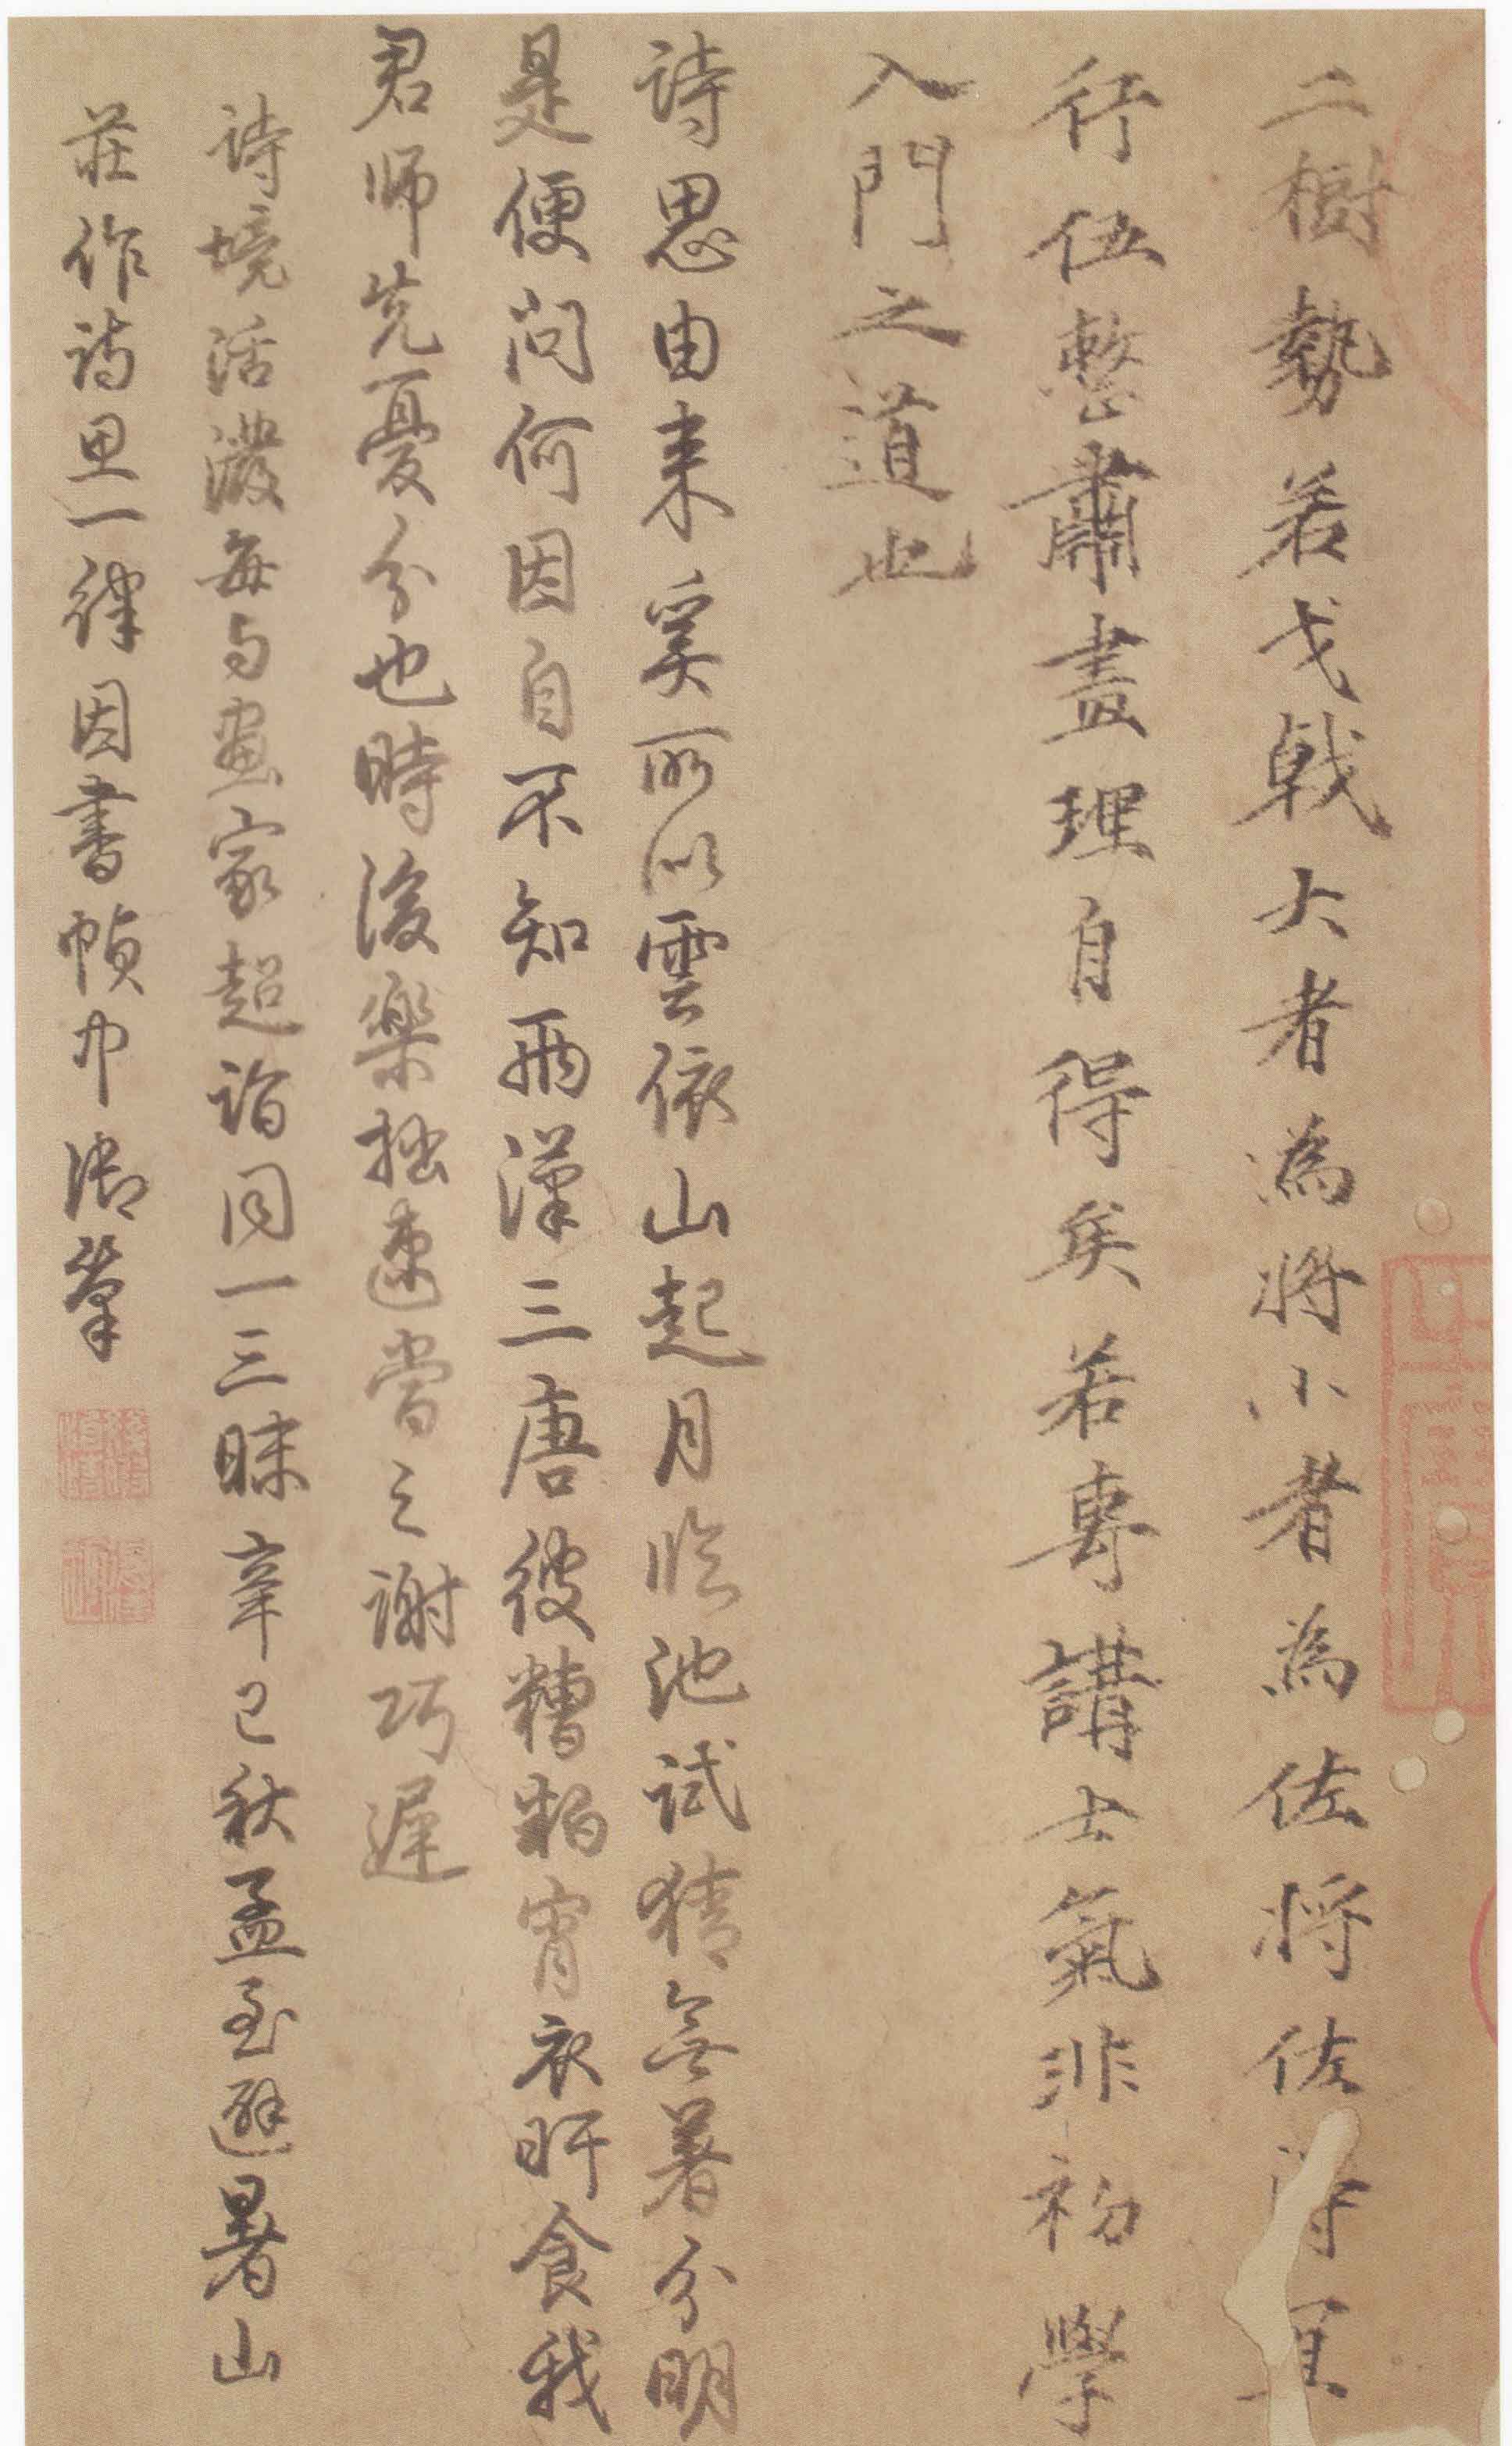 二樹勢若戈戟大者為將小者為佐將佐得宜
行伍整肅畫理自得矣若專講士氣非初學
入門之道也
詩思由來奚所以雲依山起月臨池試猜無著分明
是便問何因自不知兩漢三唐彼糟粕宵衣旰食我
君師先憂分也時後樂拙速當之謝巧遲
詩境活潑每与畫家超詣同一三昧辛巳秋孟至避暑山
莊作詩思一律因書幀中御筆